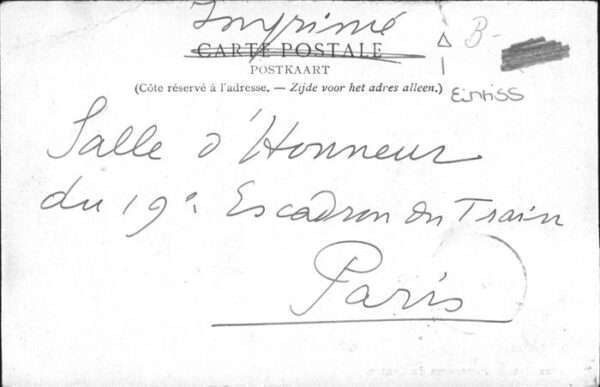 Imprimé
CARTE POSTALE
POSTKAART
(Côte réservé à l'adresse. — Zijde voor het adres alleen.)
B-
Salle d'Honneur
du 19e Escadron du Train
Paris